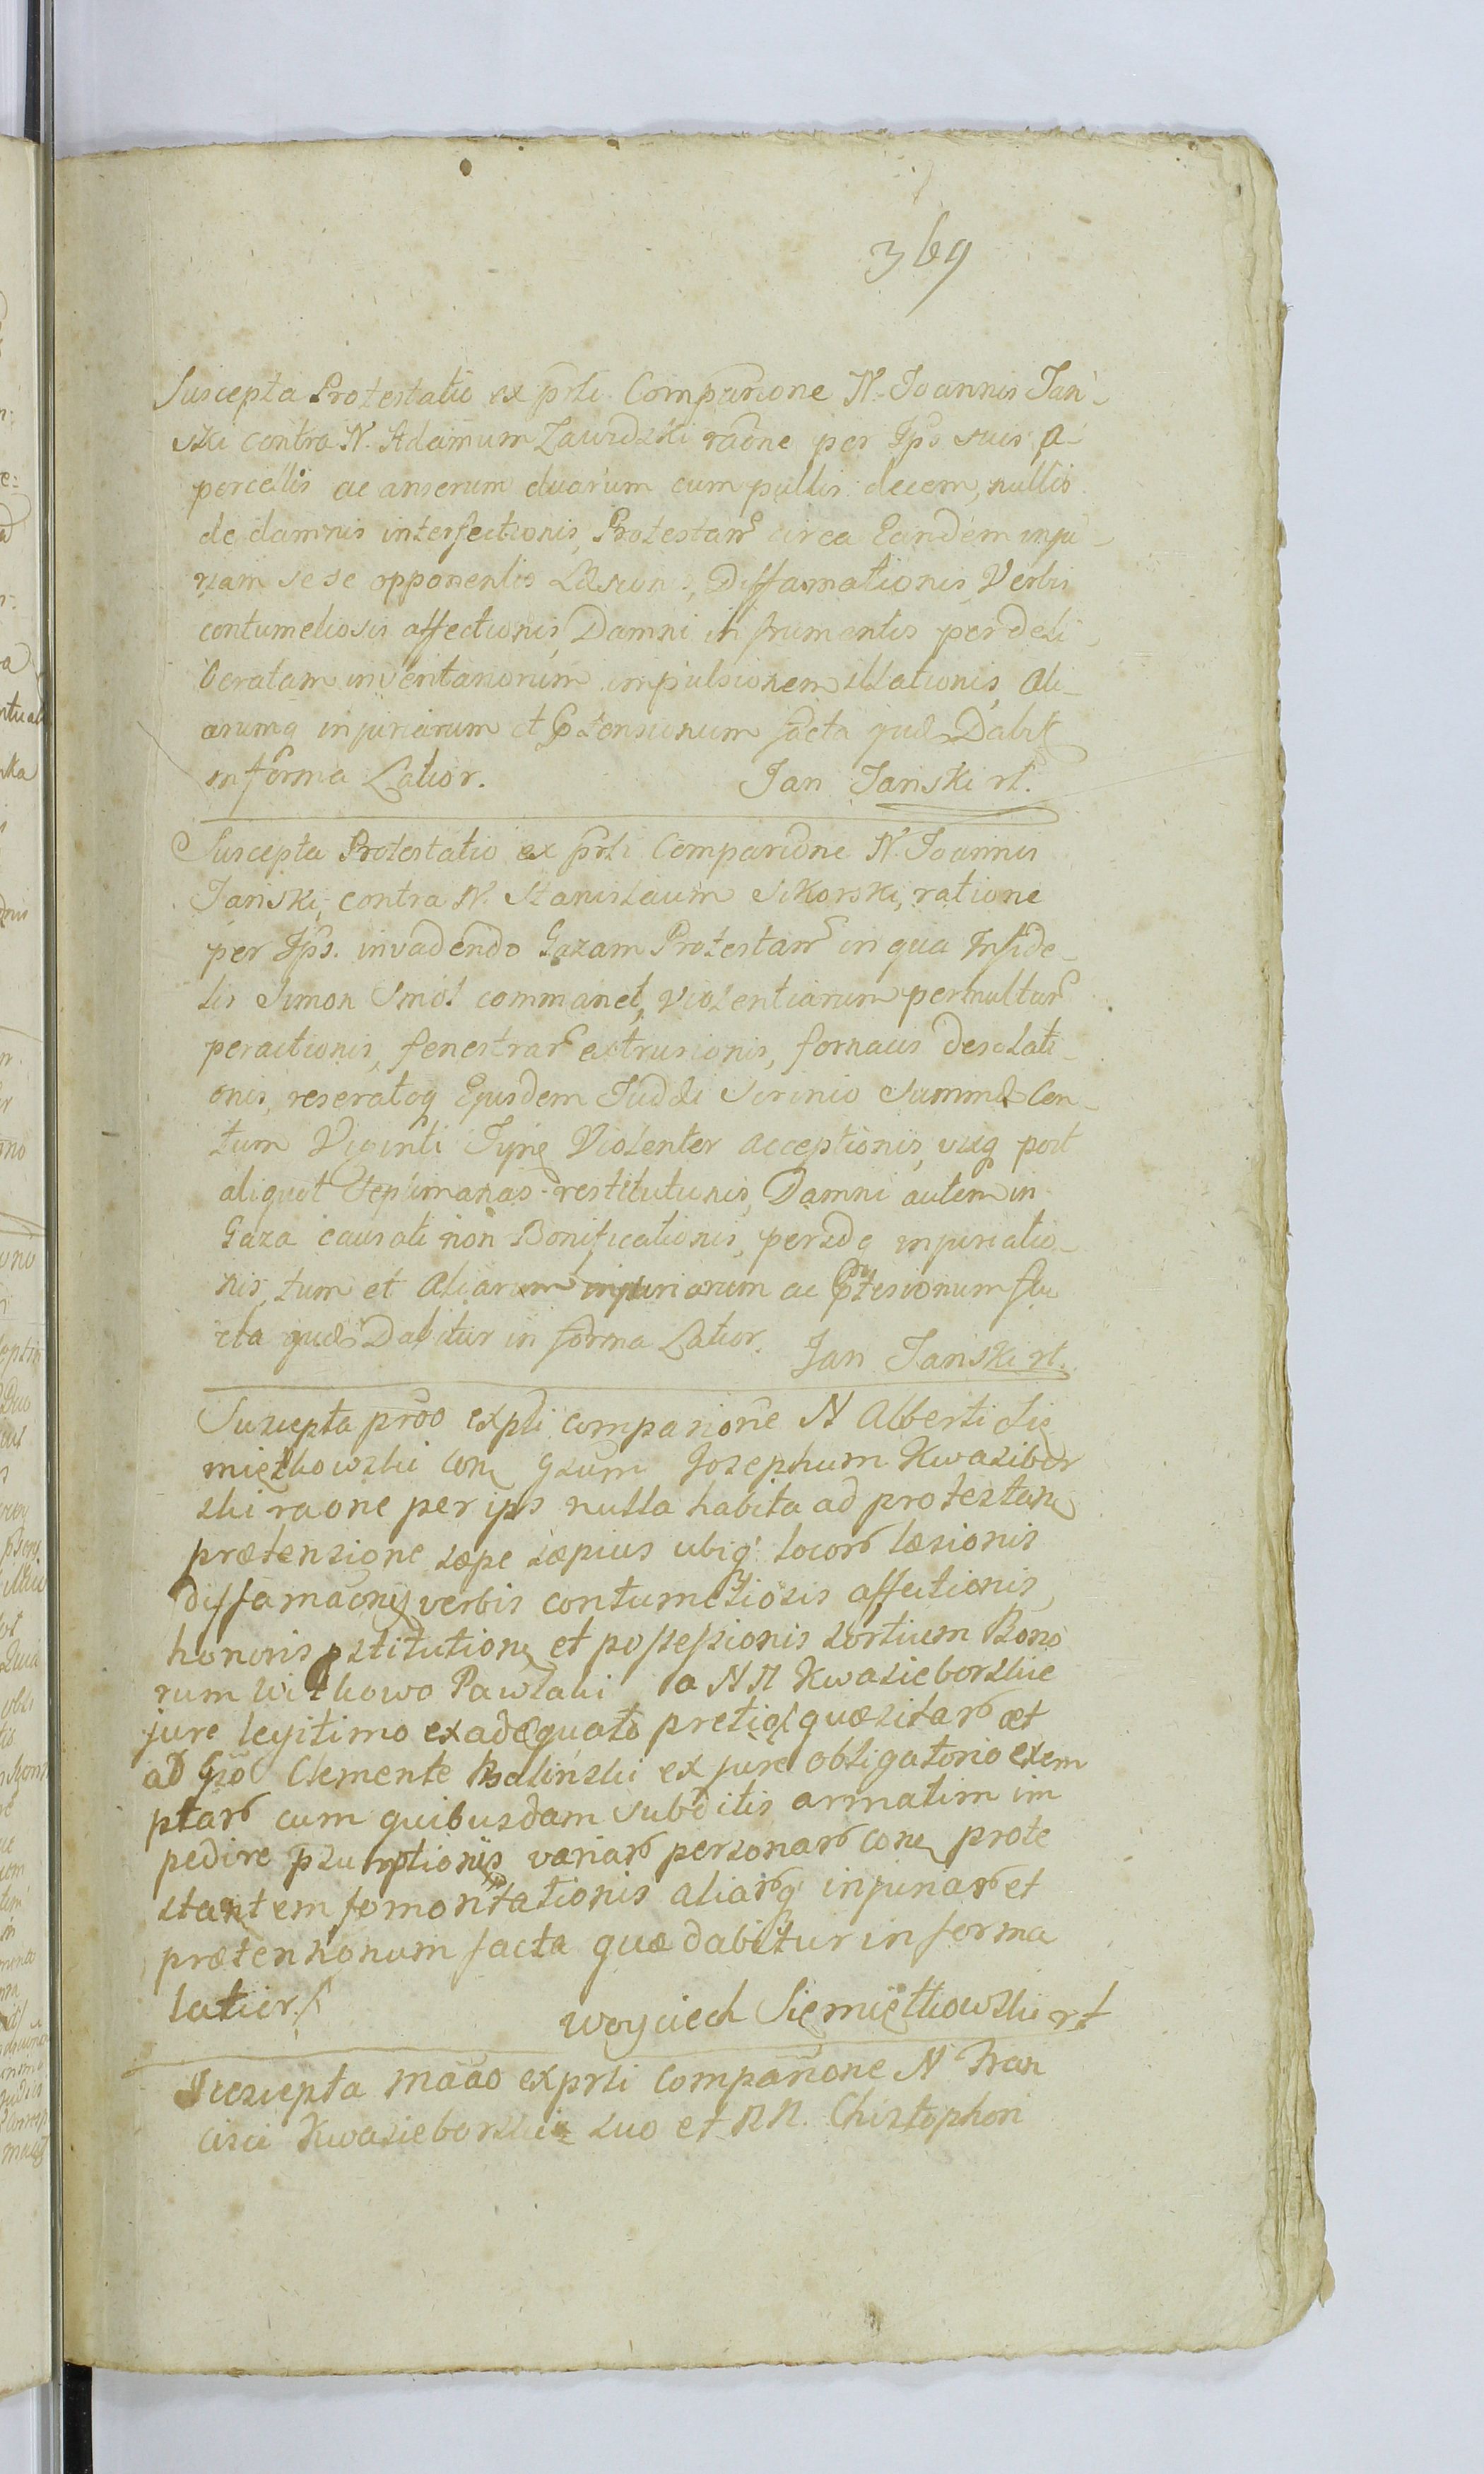 369
Suscepta Protestatio ex prti Comparione N. Joannis Jan-
ski contra N. Adamum Zawidzki raōne per Jps suis a
porcellis ac anserum duarum cum pullis decem, nullis
de damnis interfectionis, Protestan circa Eandem inju-
riam sese opponentis Læsionis, Diffamationis Verbis
contumeliosis affectionis, Damni in frumentis per deli-
beratam inventariorum impulsionem illationis, ali-
arumq injuriarum et Ptensionum facta quæ Dabit
in forma Latior. Jan Janski rt.
Suscepta Protestatio ex prti Comparione N. Joannis
Janski, contra N. Stanislaum Sikorski, ratione
per Jps. invadendo Gazam Protestan in qua Infide-
lis Simon Smol commanet, violentiarum permultar
peractionis, fenestrar extrusionis, fornacis Desolati-
onis, reseratoq Ejusdem Judæi Scrinio Summæ Cen-
tum Viginti Tynf Violenter acceptionis, vixq post
aliquot Septimanas restitutionis, Damni autem in
Gaza causati non Bonificationis, persæq injuriatio-
nis, tum et Aliarum injuriarum ac Ptesionum fa
cta quæ Dabitur in forma Latior. Jan Janski rt.
Suscepta prōo ex prti comparione N Alberti Sie
miętkowski con Gsum Josephum Kwasibor
ski raone per ips nulla habita ad protestan
prætensione sæpe sæpius ubiq locor læsionis
diffamaonis verbis contumeliosis affectionis,
honoris pstitutionis et possessionis sortium Bono
rum Witkowo Pawlaki a NN Kwasieborskie
jure legitimo exadæquato pretio quæsitar et
ad Gso Clemente Balinski ex jure obligatorio exem
ptar cum quibusdam subditis armatim im
pedire psumptionis variar personar con prote
stantem fomentationis aliarq injuriar et
prætensionum facta quæ dabitur in forma
latior.
Woyciech Siemiętkowski rt
Suscepta maāo ex prti comparione N Fran
cisci Kwasieborski suo et NN. Christophori